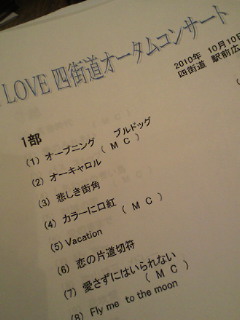 LOVE 四街道オータムコンサート
2010年 10月10
四街道 駅前広
1部
(1) オープニング ブルドッグ
( M C )
(2) オーキャロル
(3) 悲しき街角
( M C )
(4) カラーに口紅
(5) Vacation
(6) 恋の片道切符
(7) 愛さずにはいられない
( M C )
(8) Fly me to the moon